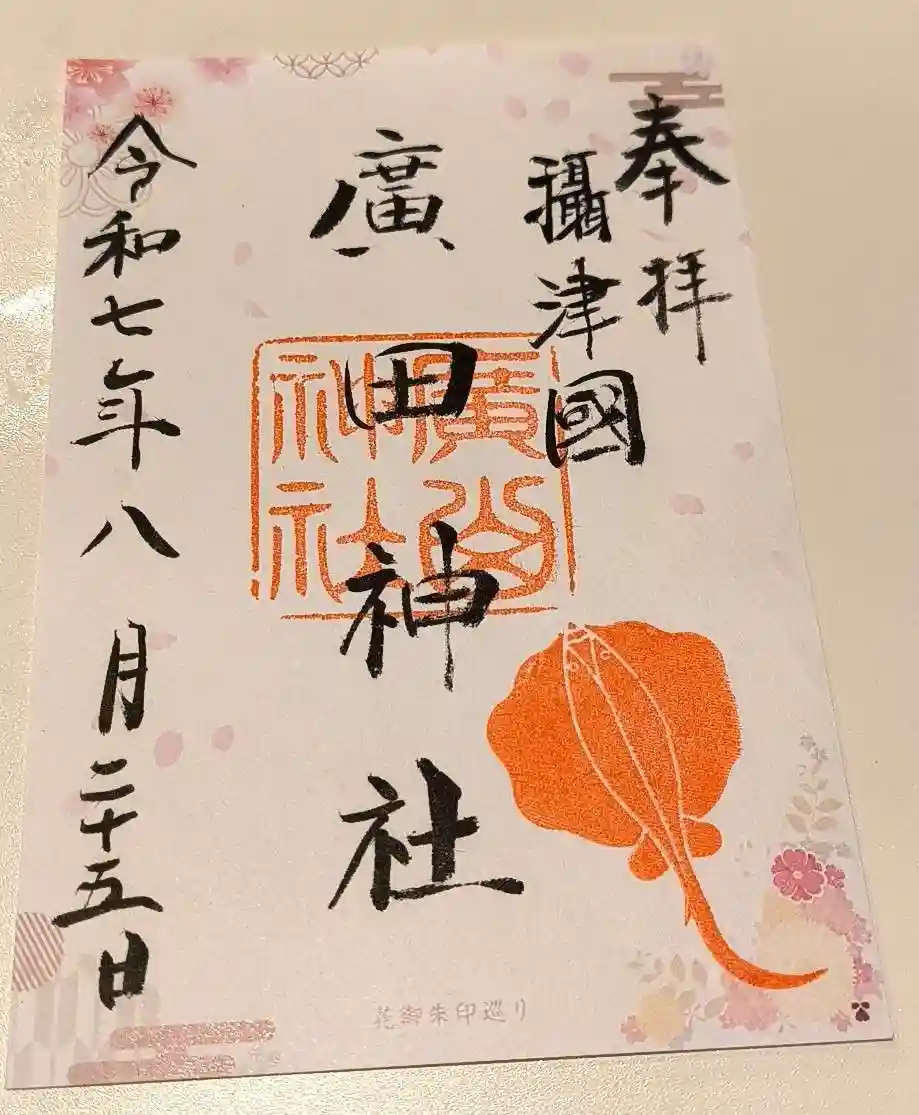 奉拝
攝津國
廣田神社
廣田神社
令和七年八月二十五日
花御朱印巡り